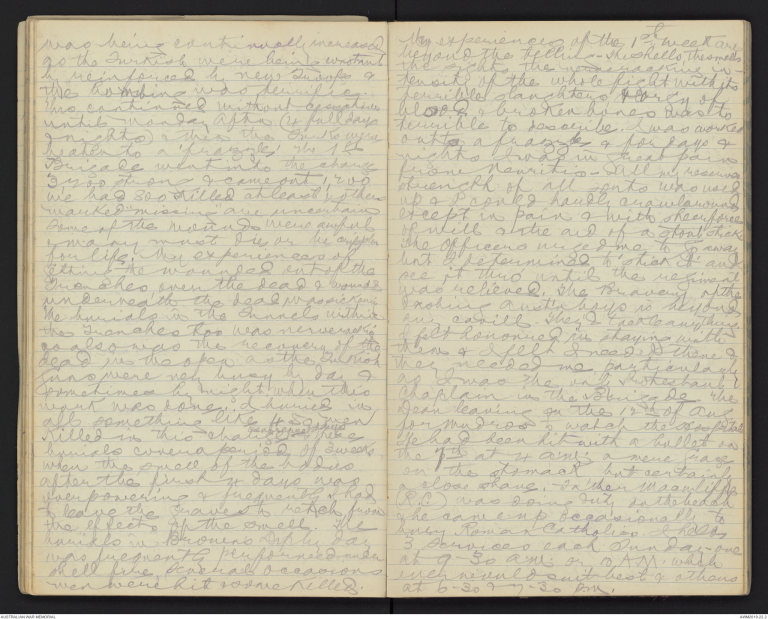 was being continually increased
as the Turkish were being constantly
reinforced by new Troops &
the bombing was terrific.
This continued without cessation
until Monday Aftn (4 full days
& nights) & then the Turks were
beaten to a 'frazzle'. The 1st
Brigade went into the charge
3000 strong & came out 1200
we had 300 killed at least, others
marked missing are uncertain
Some of the Wounds were awful
& many must die or be cripples
for life. My experiences of
getting the wounded out of the
Trenches over the dead & wounded
underneath the dead was sickening
The burials in the Tunnels within
the Trenches too was nerveracking
as also was the recovery of the
dead in the open as the Turkish
guns were very busy by day &
sometimes by night when this
work was done. I buried in
all something like men
killed in this charge these
burials cover a period of 3 weeks
when the smell of the bodies
after the first 4 days was
overpowering & frequently I had
to leave the graves to retch from
the effects of the smell. The
burials in Browns Dip by day
was frequently performed under
shell fire, Several occasions
men were hit some killed.
My experiences of the 1st week are
beyond the telling. The shells, the smells
the sights the in-
tensity of the whole fight with its
terrible slaughter & story of
blood & broken bones was too
terrible to describe. I was worked
out to a frazzle & for days &
nights I was in great pain
from Neuritis – All my reserve
strength of all sorts was used
up & I could hardly crawl around
except in pain & with sheer force
of will & the aid of a stout stick
The Officers urged me to go away
but I determined to stick it and
see it thro until the regiment
was relieved. The Bravery of the
Aust. boys is beyond
any cavill. They'd face anything.
I felt honoured in staying with
them & I felt I needed them &
they needed me particularly
as I was the only Protestant
Chaplain in the Brigade the
Dean leaving on the 12th of Aug
for Mudros to watch the Hospitals
He had been hit with a bullet on
the 7th at 4 am; a mere graze
on the stomach but certainly
a close shave. Father MacAuliffe
(R.C) was doing duty on the beach
& he came up occasionally to
bury Roman Catholics. I hold
3 Services each Sunday – one
at 9-30 a.m. or 10 A.M. which
ever would suit best & others
at 6-30 & 7-30 pm.
AUSTRALIAN WAR MEMORIAL